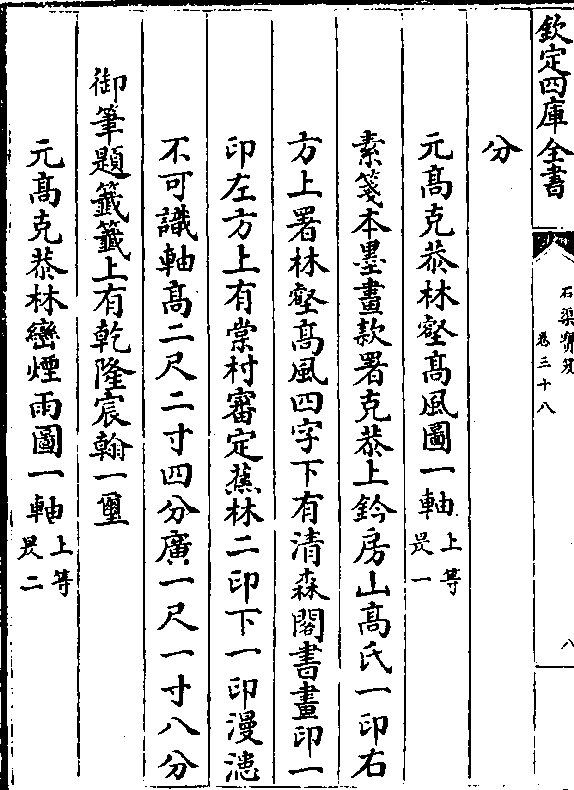 欽定四庫全書
石渠寶笈
卷三十八
八
分
元高克恭林壑高風圖一軸上等
昃一
素箋本墨畫款署克恭上鈐房山高氏一印右
方上署林壑高風四字下有清森閣書畫印一
印左方上有棠村審定蕉林二印下一印漫漶
不可識軸高二尺二寸四分廣一尺一寸八分
御筆題籤籤上有乾隆宸翰一璽
元高克恭林巒煙雨圖一軸上等
昃二